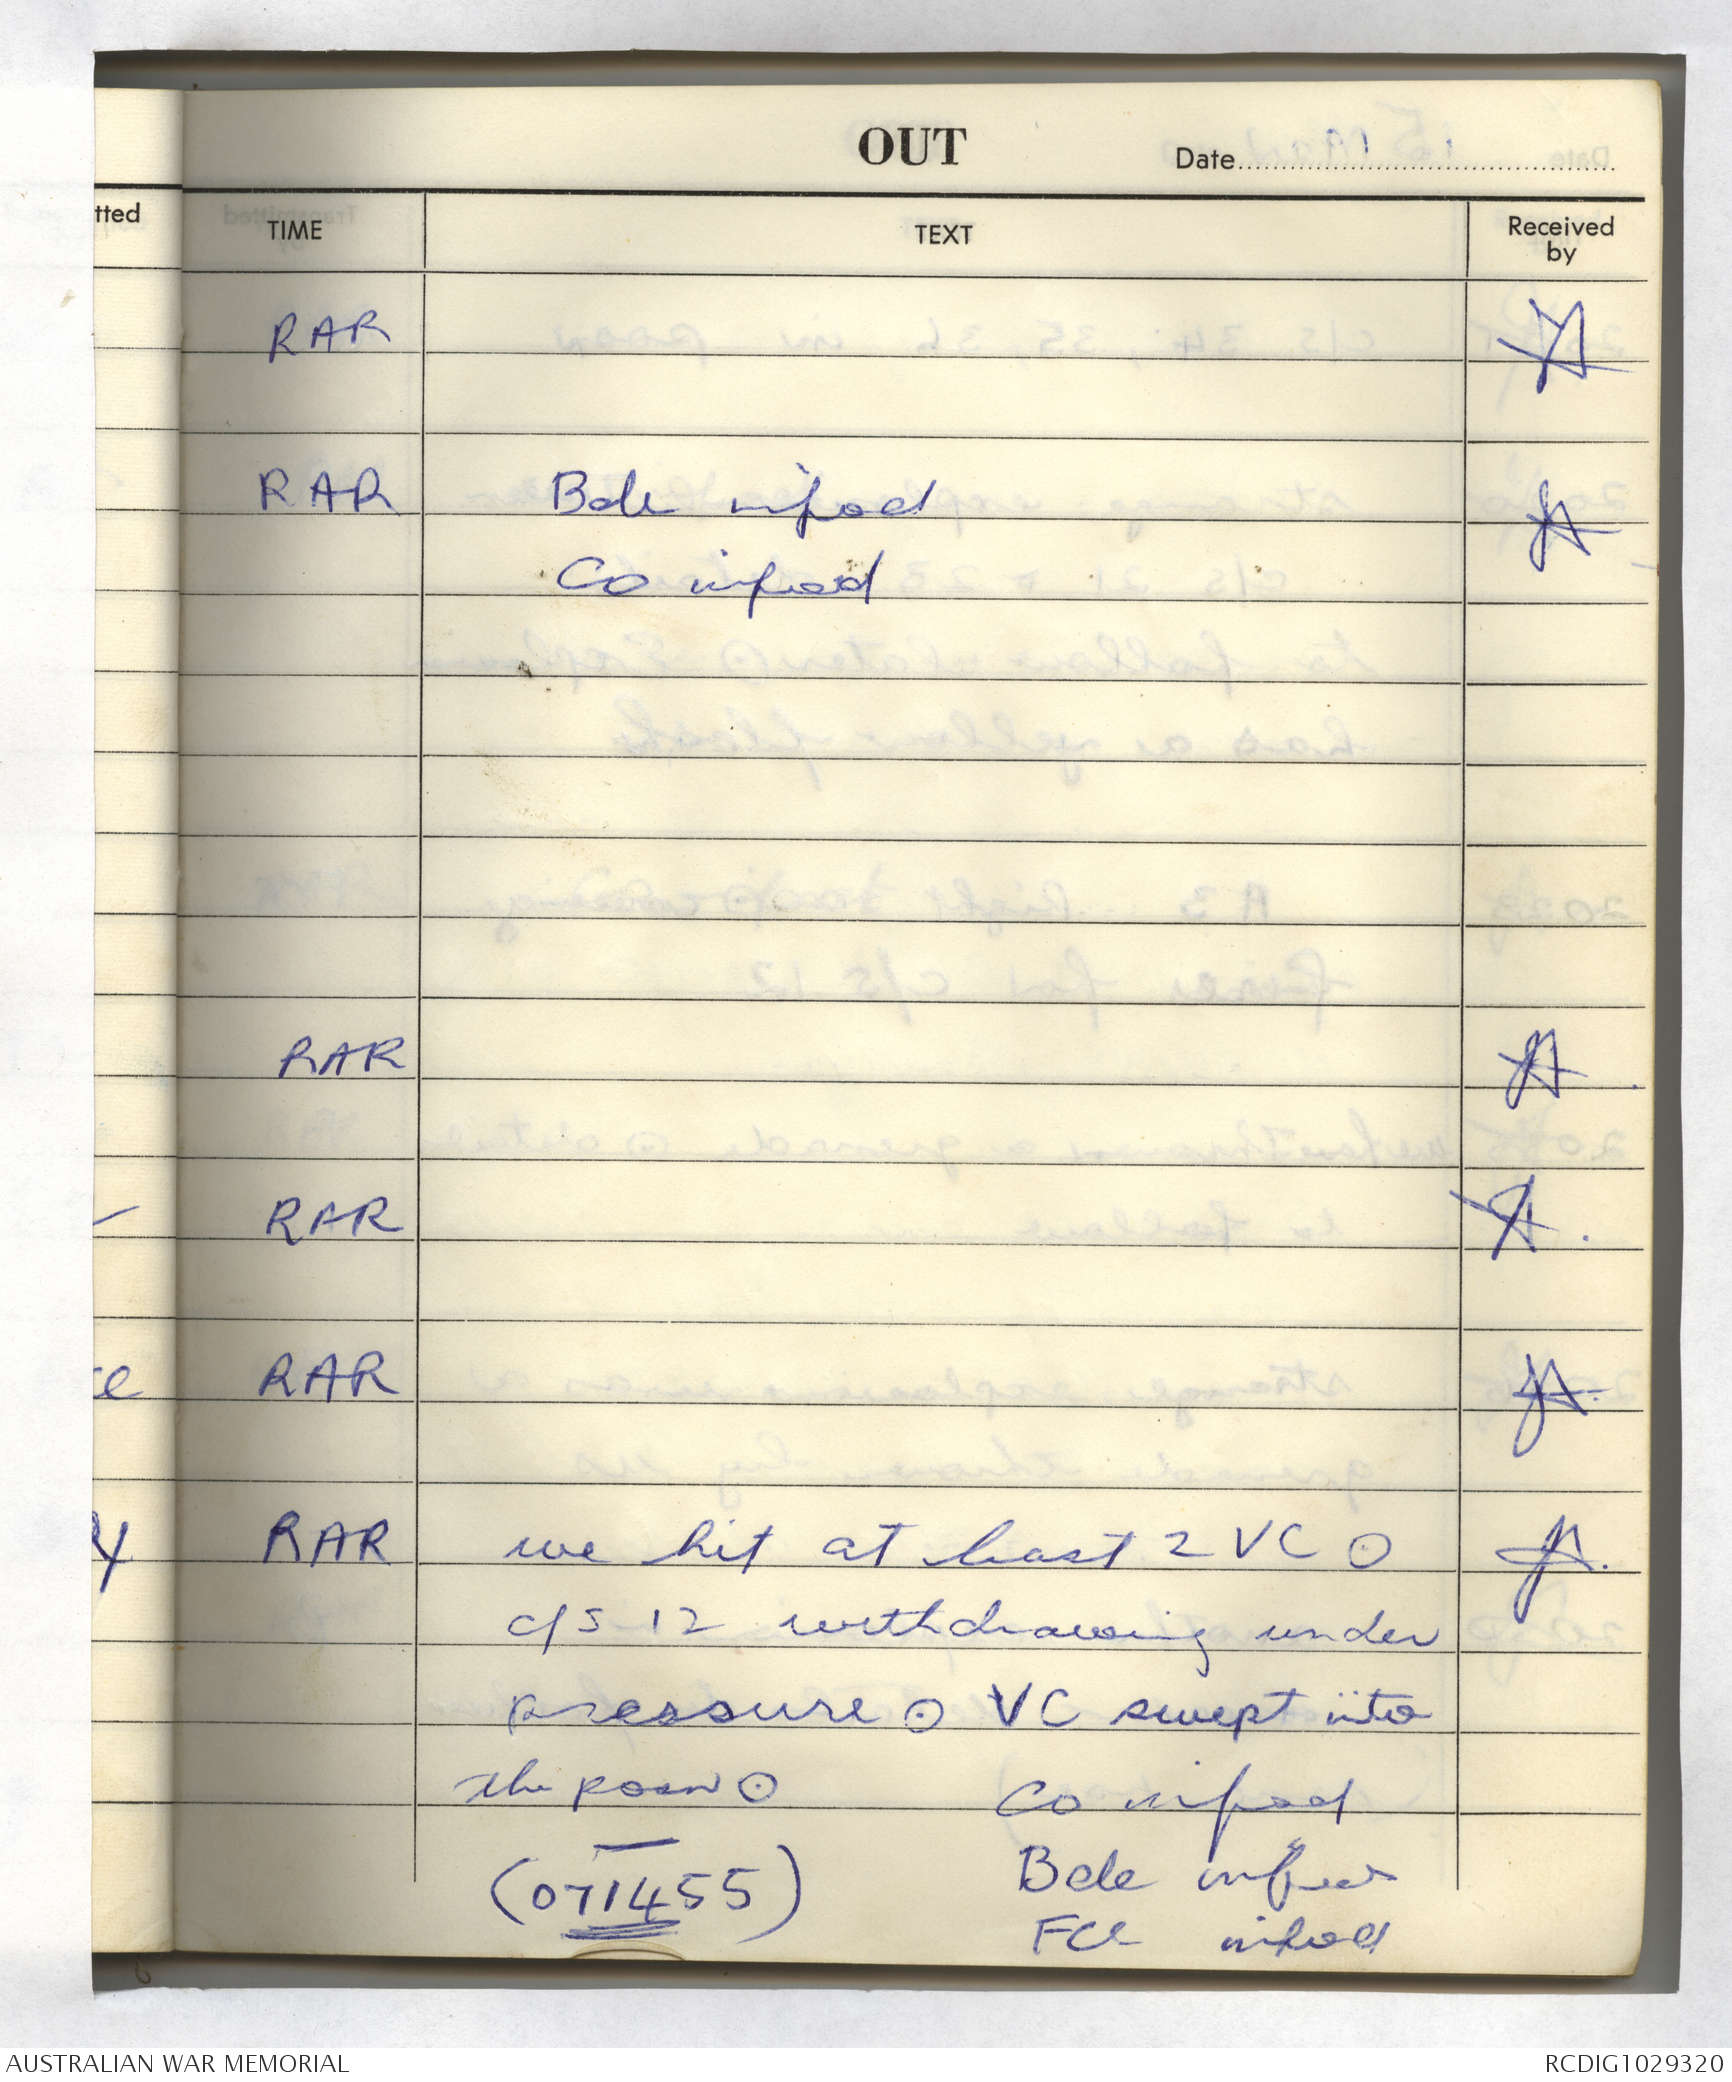 OUT
Date
tted
TIME
TEXT
Received
by
RAR
RAR Bde infod
CO infod
RAR
RAR
RAR
RAR we hit at least 2 VC ⊙
c/s 12 withdrawing under
pressure ⊙ VC swept into
the posn ⊙ CO infod
(071455) Bde
infod
AUSTRALIAN WAR MEMORIAL
RCDIG1029320